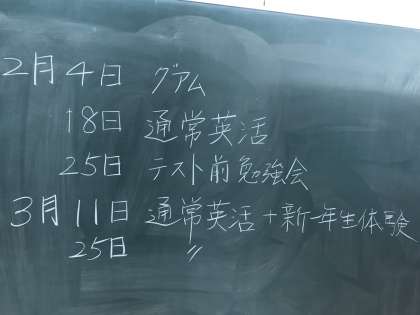 2月4日 グアム
18日 通常英活
25日 テスト前勉強会
3月11日 通常英活+新一年生体験
25日 〃